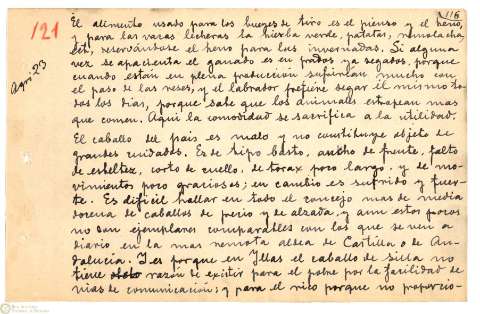 116
121
Agri-23
El alimento usado para los bueyes de tiro es el pienso y el heno,
y para las vacas lecheras la hierba verde, patatas, remolacha
etc, reservándose el heno para las invernadas. Si alguna
vez se apacienta el ganado es en prados ya segados, porque
cuando están en plena producción sufrirían mucho con
el paso de las reses, y el labrador prefiere segar él mismo to-
dos los dias, porque sabe que los animales estropean mas
que comen. Aqui la comodidad se sacrifica a la utilidad.
El caballo del país es malo y no constituye objeto de
grandes cuidados. Es de tipo basto, ancho de frente, falto
de esbeltez, corto de cuello, de torax poco largo y de mo-
vimientos poco graciosos; en cambio es sufrido y fuer-
te. Es difícil hallar en todo el concejo mas de media
docena de caballos de precio y de alzada, y aun estos pocos
no son ejemplares comparables con los que se ven a
diario en la mas remota aldea de Castilla o de An-
dalucía. Y es porque en Yllas el caballo de silla no
tiene razón de existir para el pobre por la facilidad de
vias de comunicación; y para el rico porque no proporcio-